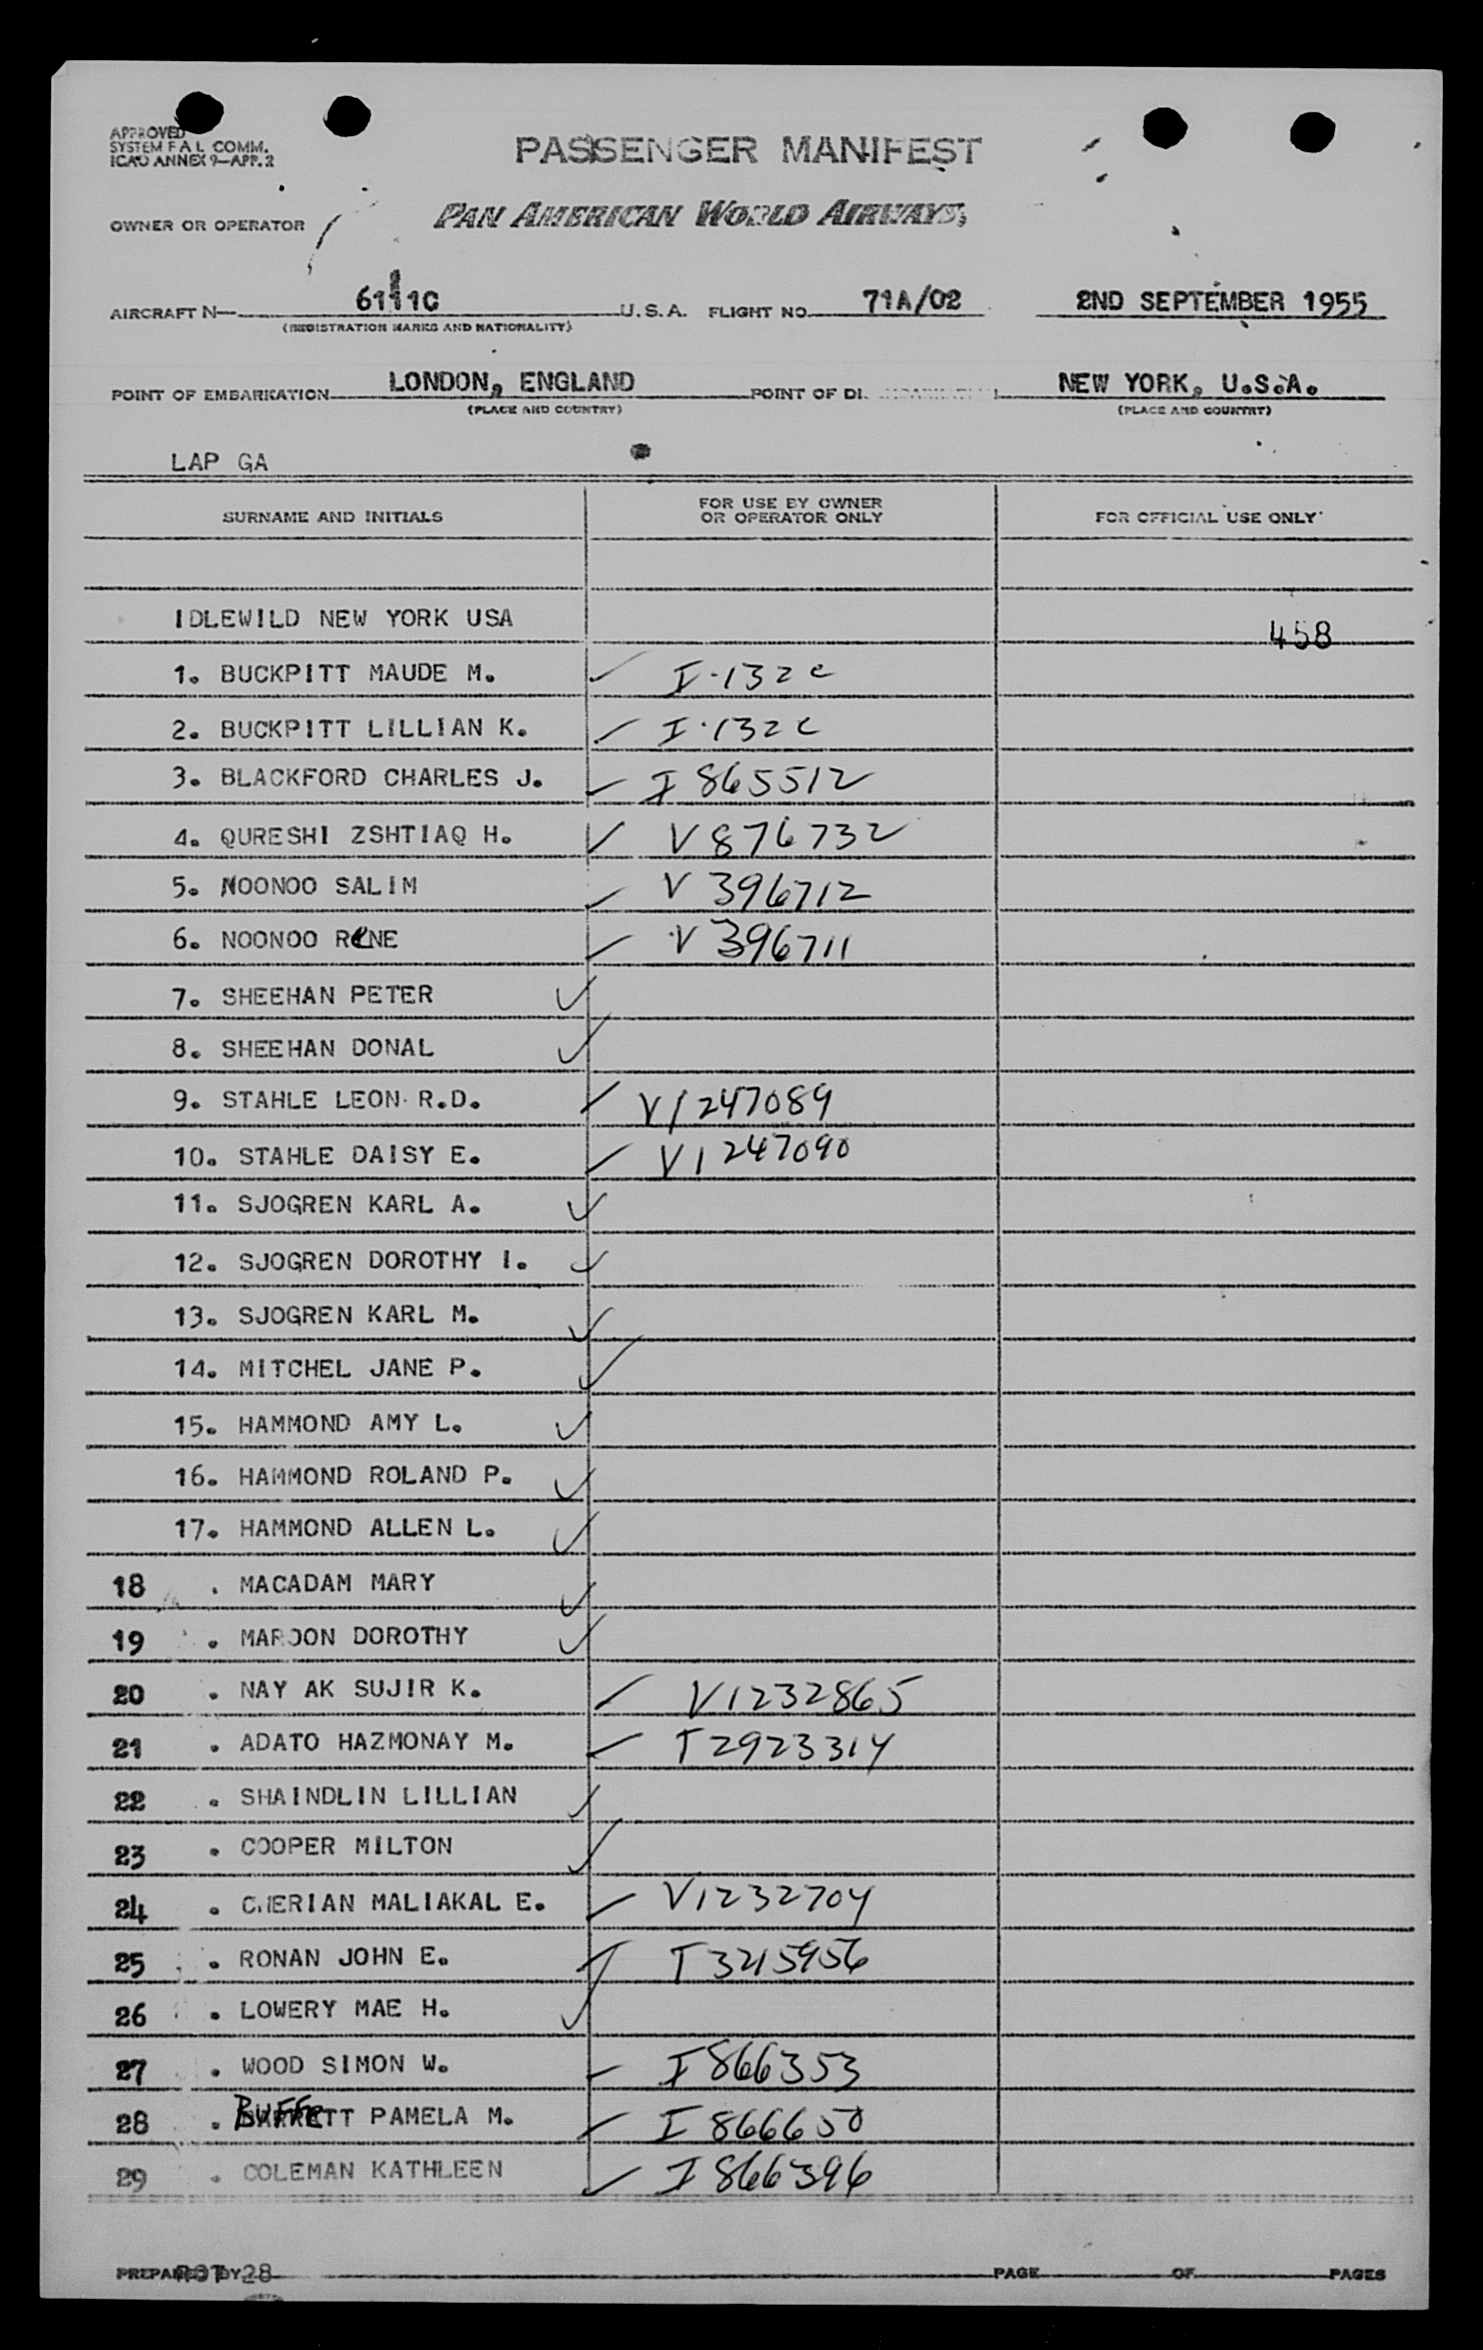 APPROVED
SYSTEM F A L COMM.
ICAO ANNEX 9—APP. 2
PASSENGER MANIFEST
OWNER OR OPERATOR
PAN AMERICAN WORLD AIRWAYS,
AIRCRAFT N— 6111C U. S. A. FLIGHT NO. 71A/02 2ND SEPTEMBER 1955
(REGISTRATION MARKS AND NATIONALITY)
POINT OF EMBARKATION LONDON, ENGLAND POINT OF NEW YORK, U.S.A.
(PLACE AND COUNTRY) (PLACE AND COUNTRY)
LAP GA
SURNAME AND INITIALS FOR USE BY OWNER OR OPERATOR ONLY FOR OFFICIAL USE ONLY
IDLEWILD NEW YORK USA 458
1. BUCKPITT MAUDE M. ✓ I-132c
2. BUCKPITT LILLIAN K. ✓ I-132c
3. BLACKFORD CHARLES J. ✓ I 865512
4. QURESHI ZSHTIAQ H. ✓ V 876732
5. NOONOO SALIM ✓ V 396712
6. NOONOO RENE ✓ V 396711
7. SHEEHAN PETER ✓
8. SHEEHAN DONAL ✓
9. STAHLE LEON R.D. ✓ V1247089
10. STAHLE DAISY E. ✓ V1247090
11. SJOGREN KARL A. ✓
12. SJOGREN DOROTHY I. ✓
13. SJOGREN KARL M. ✓
14. MITCHEL JANE P. ✓
15. HAMMOND AMY L. ✓
16. HAMMOND ROLAND P. ✓
17. HAMMOND ALLEN L. ✓
18 . MACADAM MARY ✓
19 . MAROON DOROTHY ✓
20 . NAY AK SUJIR K. ✓ V1232865
21 . ADATO HAZMONAY M. ✓ T2923314
22 . SHAINDLIN LILLIAN ✓
23 . COOPER MILTON ✓
24 . CHERIAN MALIAKAL E. ✓ V1232704
25 . RONAN JOHN E. ✓ T3215956
26 . LOWERY MAE H. ✓
27 . WOOD SIMON W. ✓ I 866353
28 . BUFFETT PAMELA M. ✓ I 866650
29 . COLEMAN KATHLEEN ✓ I 866396
PREPARED BY 28 PAGE OF PAGES